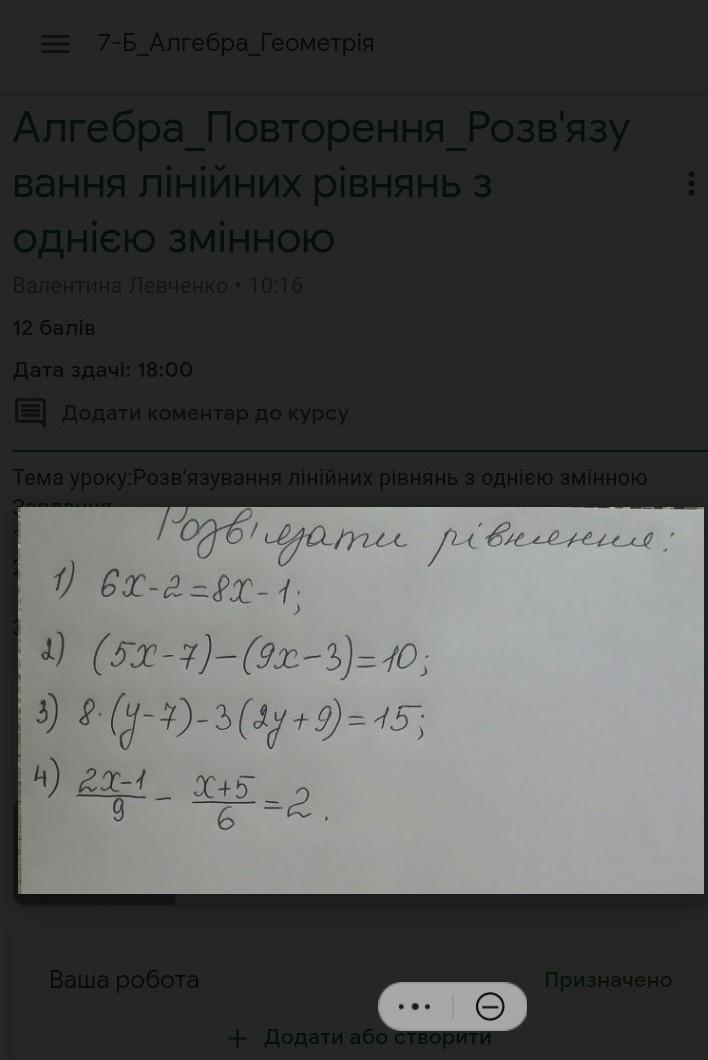 7-Б_Алгебра_Геометрія
Алгебра_Повторення_Розв'язу
вання лінійних рівнянь з
однією змінною
Валентина Левченко • 10:16
12 балів
Дата здачі: 18:00
Додати коментар до курсу
Тема уроку:Розв'язування лінійних рівнянь з однією змінною
Розв'язати рівняння:
1) 6x-2=8x-1;
2) (5x-7)-(9x-3)=10;
3) 8·(y-7)-3(2y+9)=15;
4) (2x-1)/9 - (x+5)/6 = 2.
Ваша робота Призначено
+ Додати або створити